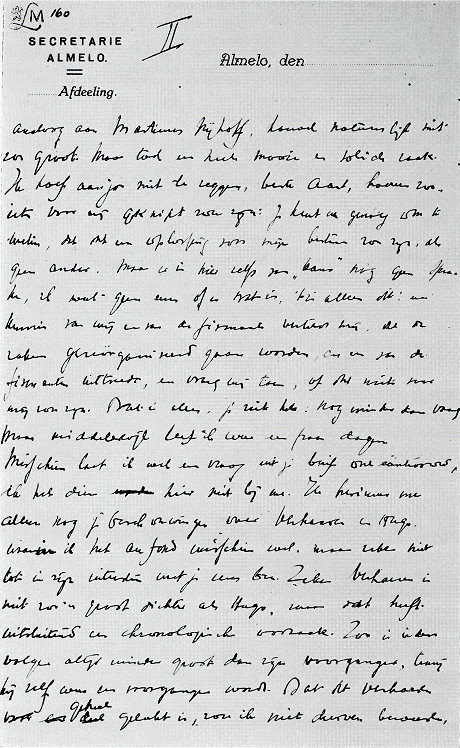 LM 160
II
SECRETARIE
ALMELO.
Almelo, den
Afdeeling.
aan Martinus Nijhoff, hoewel natuurlijk niet
zoo groot. Maar toch een heele mooie en solide zaak.
Ik hoef aan jou niet te zeggen, beste Aart, hoezeer zoo-
iets voor mij geknipt zou zijn: Je kent me genoeg om te
weten, dat dit een oplossing voor mijn bestaan zou zijn, als
geen ander. Maar er is hier zelfs van "kans" nog geen spra-
ke, ik weet geen eens of er iets is, 't is alleen dit: een
kennis van mij en van de firmanten vertelde mij, dat de
zaken gereorganiseerd gaan worden, een van de
firmanten uittreedt, en vroeg mij toen, of dit niets voor
mij zou zijn. Dat is alles, je ziet het. Nog minder dan vaag
Maar middelerwijl leef ik weer een paar dagen
Misschien laat ik wel een vraag uit je brief onbeantwoord,
ik heb dien hier niet bij me. Ik herinner me
alleen nog je beschouwingen over Verhaeren en Hugo.
ik het au fond misschien wel, maar zeker niet
tot in zijn uitersten met je eens ben. Zeker Verhaeren is
niet zoo'n groot dichter als Hugo, maar dat heeft
uitsluitend een chronologische oorzaak. Zoo is iedere
volgeling altijd minder groot dan zijn voorganger, tenzij
hij zelf weer een voorganger wordt. Dat dit Verhaeren
geheel gelukt is, zou ik niet durven beweren,